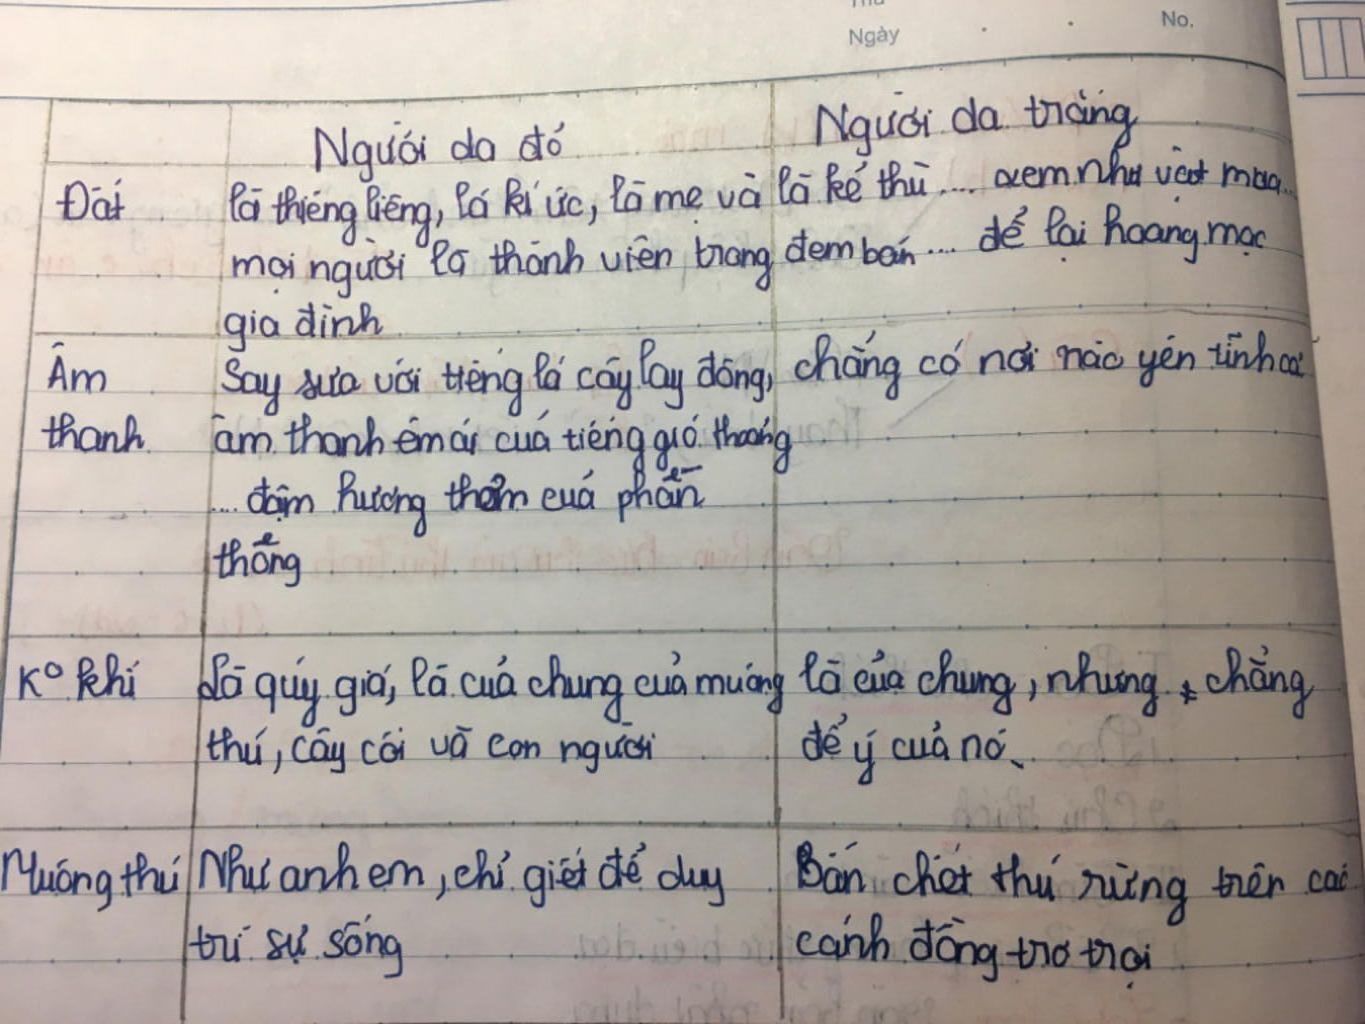 Ngày
No.
Người da đỏ
Người da trắng
Đất
là thiêng liêng, là kí ức, là mẹ và
mọi người là thành viên trong
gia đình
là kẻ thù .... xem như vật mua
đem bán .... để lại hoang mạc
Âm
thanh
Say sưa với tiếng lá cây lay động,
âm thanh êm ái của tiếng gió thoảng
.... đậm hương thơm của phấn
thông
chẳng có nơi nào yên tĩnh cả
K° khí
Là quý giá, là của chung của muông
thú, cây cối và con người
là của chung, nhưng chẳng
để ý của nó
Muông thú
Như anh em, chỉ giết để duy
trì sự sống
Bắn chết thú rừng trên các
cánh đồng trơ trọi